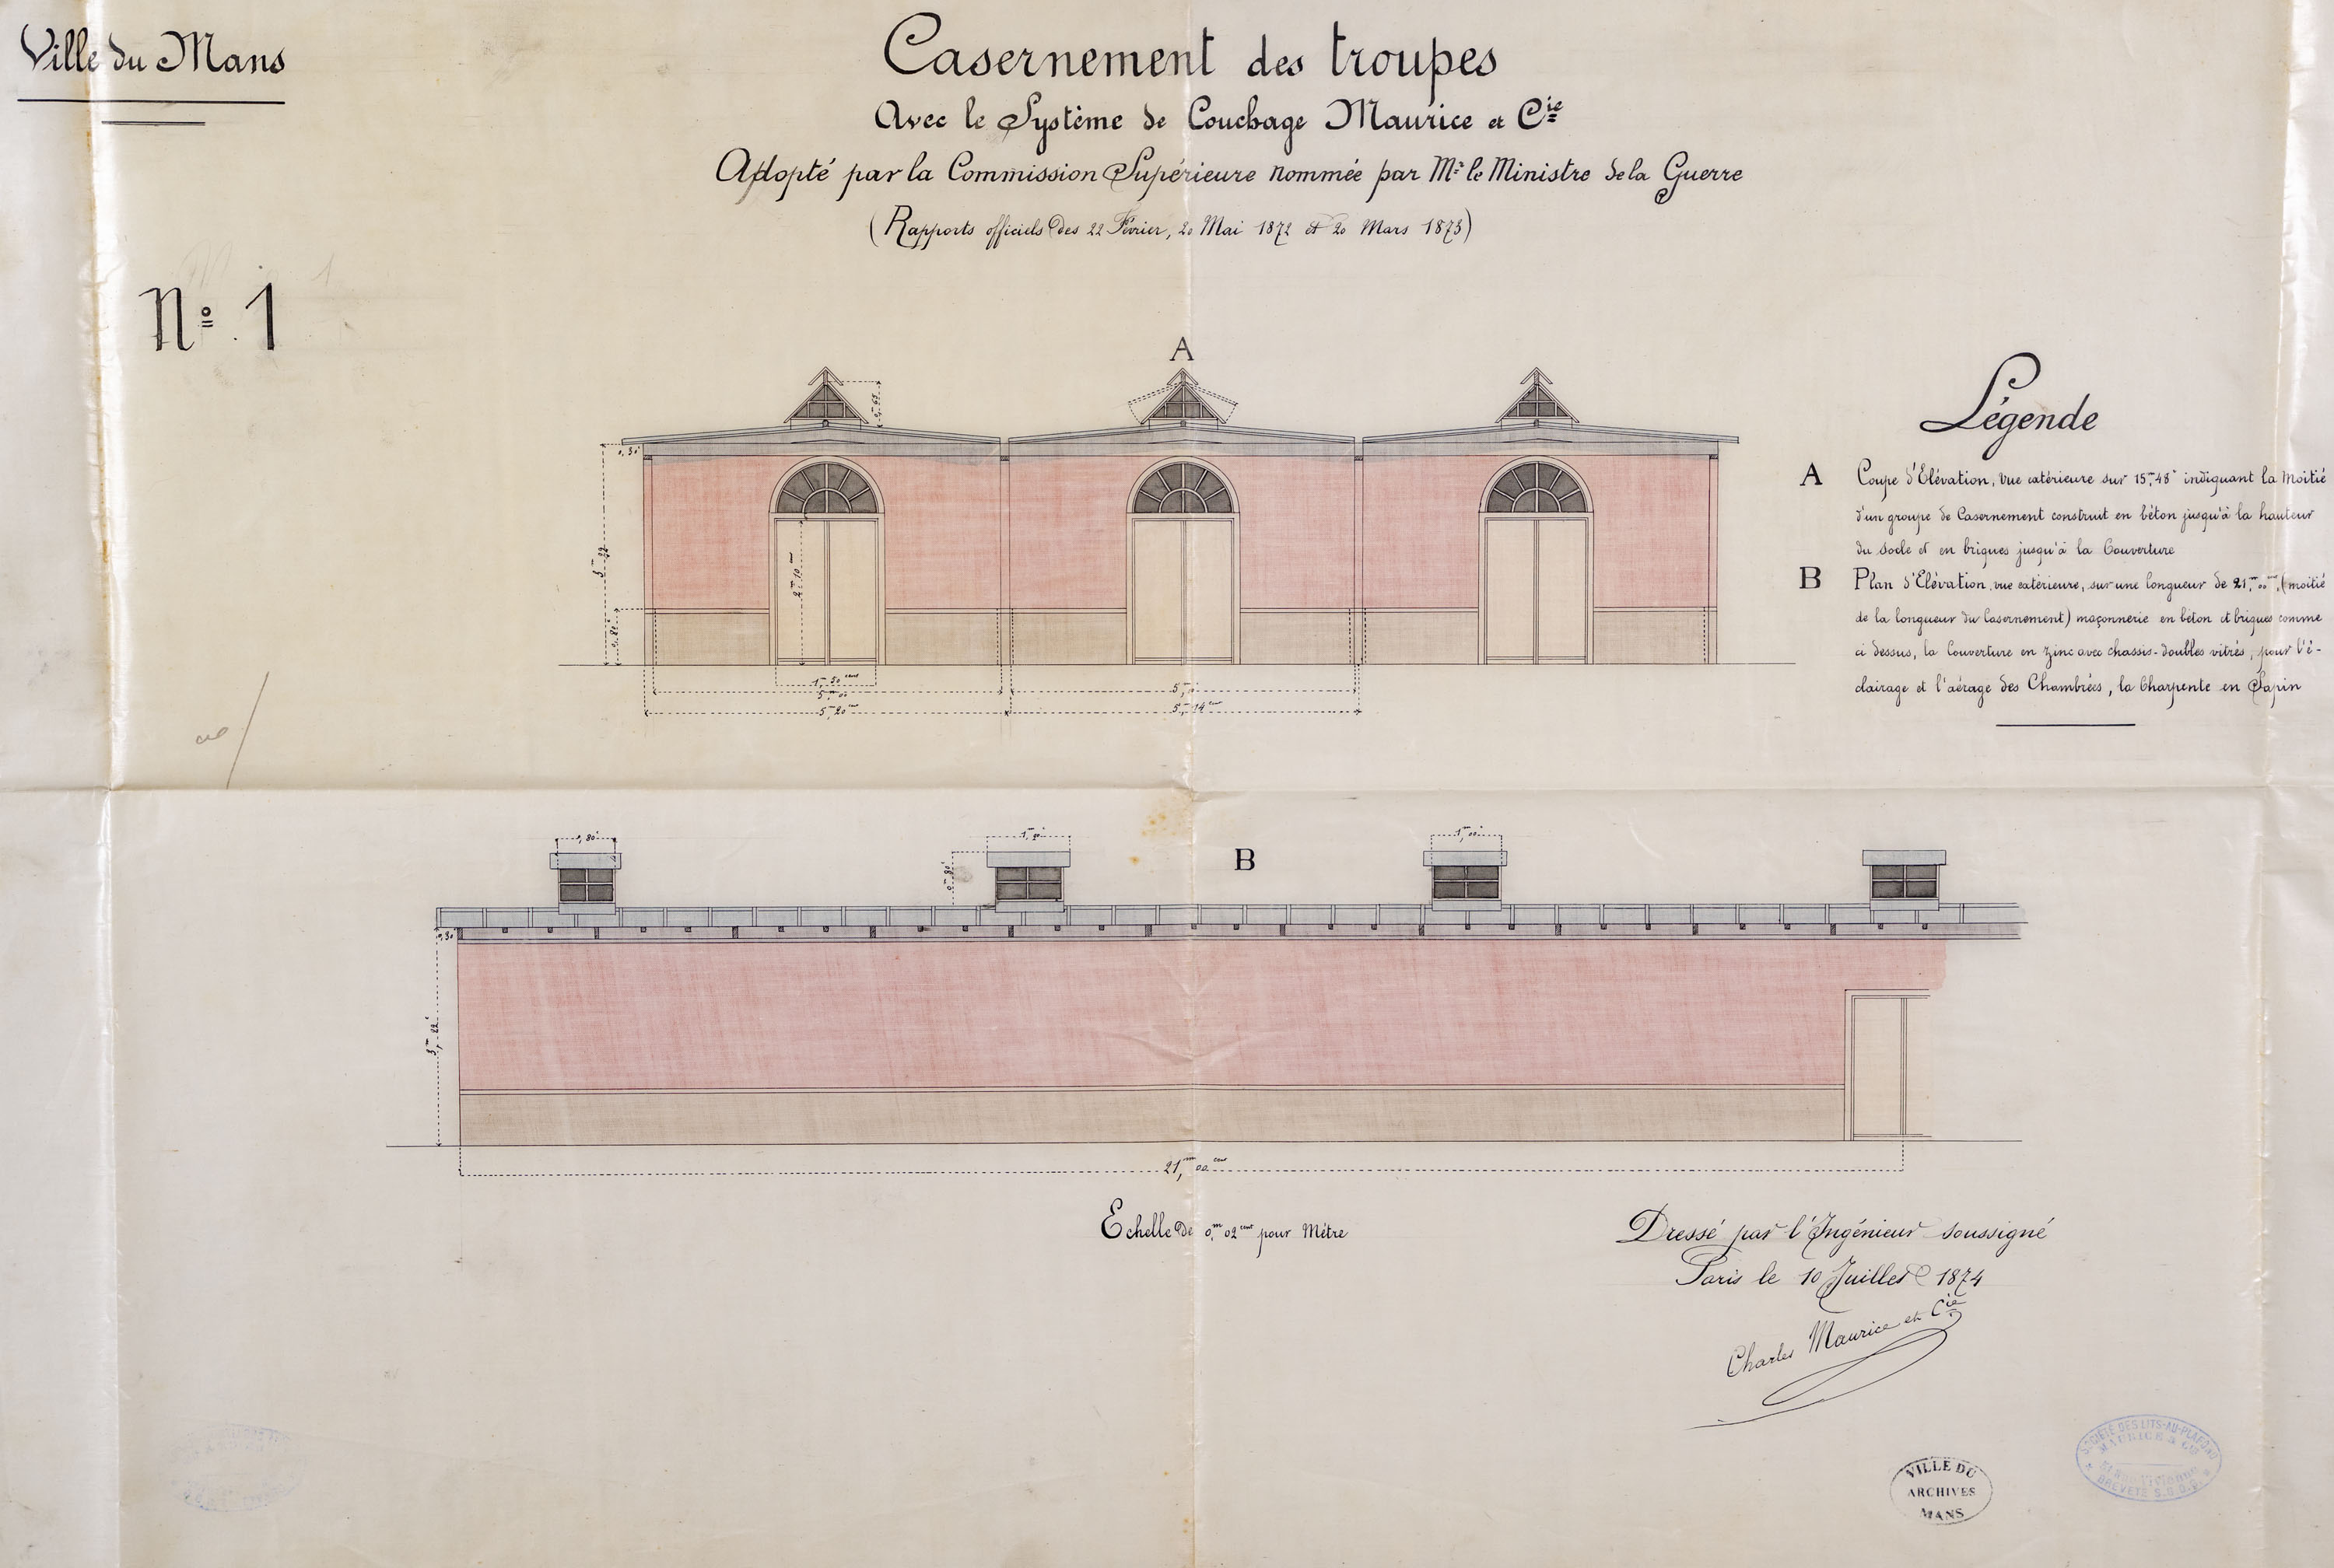 Ville du Mans
Casernement des troupes
Avec le Système de Couchage Maurice et Cie
Adopté par la Commission Supérieure nommée par Mr le Ministre de la Guerre
(Rapports officiels des 22 Février, 20 Mai 1872 et 20 Mars 1873)
No. 1
A
Légende
A Coupe d'Elévation, vue extérieure sur 15,m48c indiquant la moitié
d'un groupe de Casernement construit en béton jusqu'à la hauteur
du socle et en briques jusqu'à la Couverture
B Plan d'Elévation, vue extérieure, sur une longueur de 21,m00cm, (moitié
de la longueur du Casernement) maçonnerie en béton et briques comme
ci dessus, la Couverture en zinc avec chassis-doubles vitrés, pour l'é-
clairage et l'aérage des Chambrées, la Charpente en Sapin
0,30c
2m10c
0,80c
1,m50cent
5,m00
5,m20cent
5,m
5,m14cent
0,80c
1,m20c
1,m00c
B
0m80c
0,30
3,m22c
21,m00cent
Echelle de 0,m02cent pour Mètre
Dressé par l'Ingénieur soussigné
Paris le 10 Juillet 1874
Charles Maurice et Cie
VILLE DU
ARCHIVES
MANS
SOCIÉTÉ DES LITS-AU-PLAFOND
MAURICE & CIE
51 Rue Vivienne
BREVETÉ S.G.D.G.